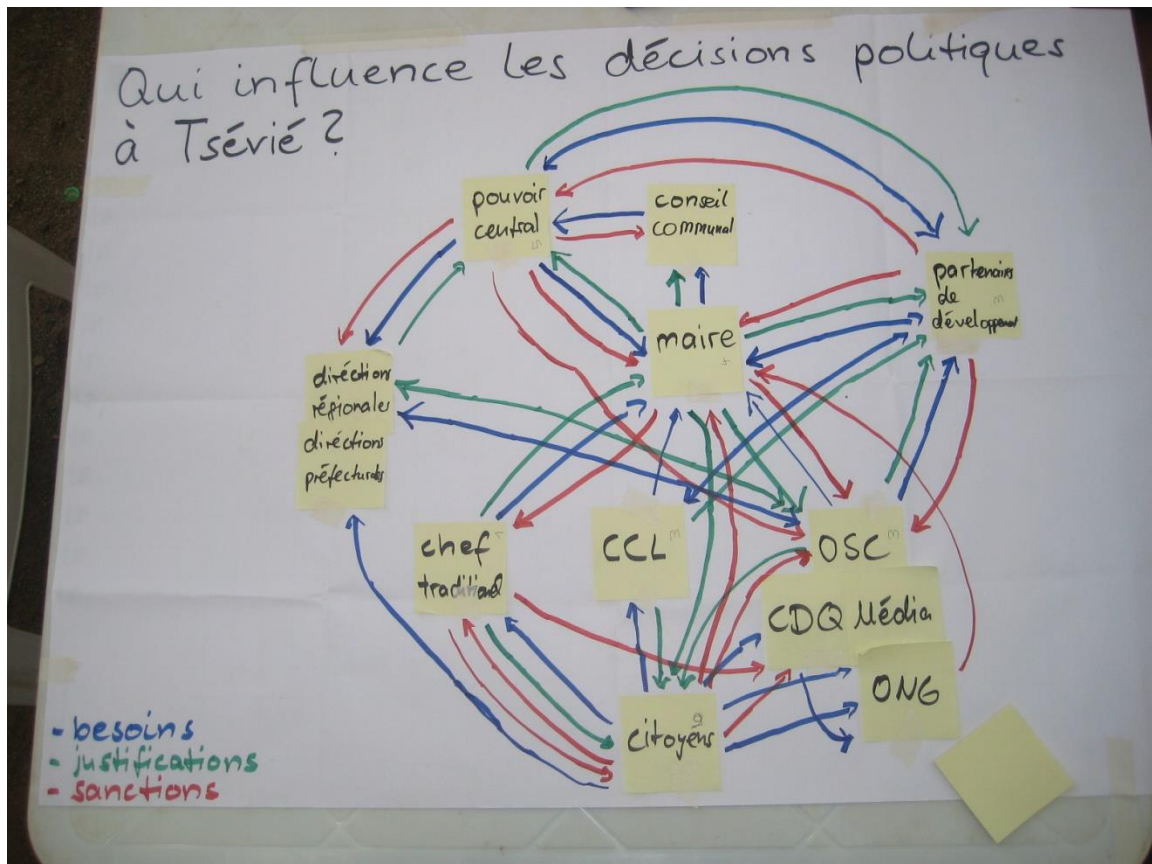 Qui influence les décisions politiques
à Tsévié ?
pouvoir
central
5
conseil
communal
3
partenaires
de
développement
3
maire
4
diréctions
régionales
diréctions
préfecturales
chef
traditionel
CCL
3
OSC
3
CDQ
Média
ONG
citoyens
- besoins
- justifications
- sanctions